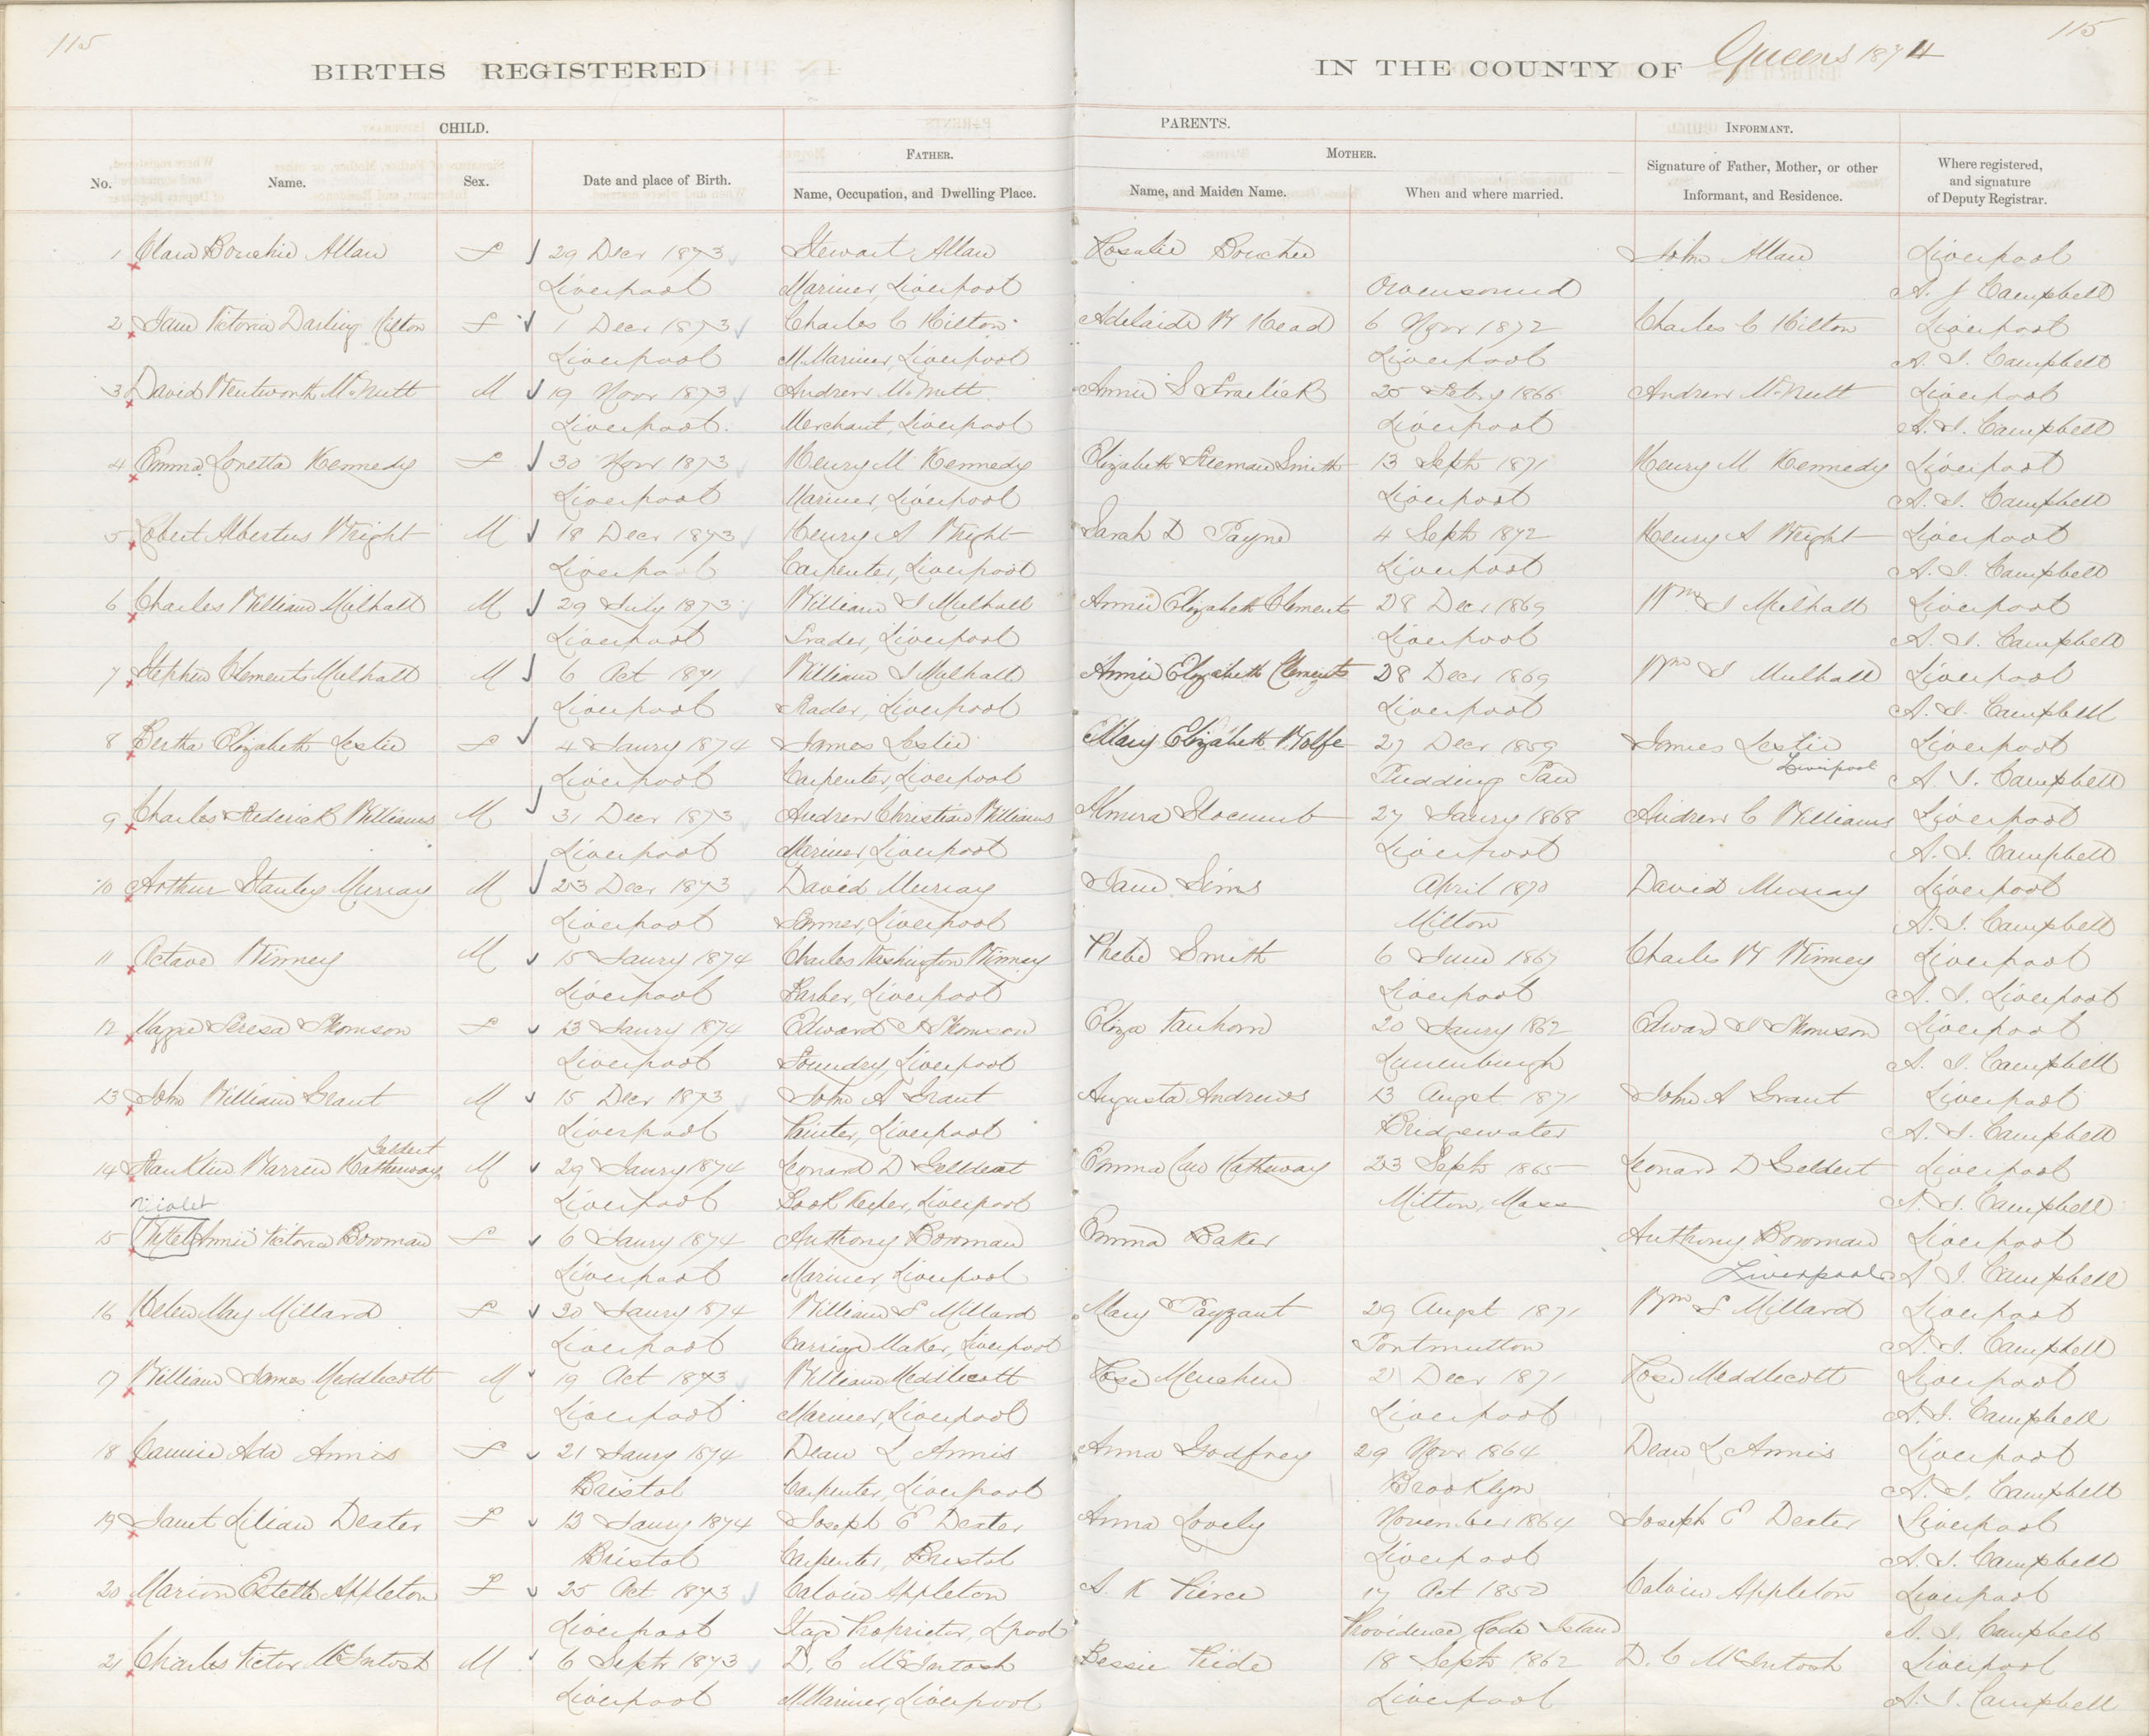 115
115
BIRTHS REGISTERED
IN THE COUNTY OF Queens 1874
CHILD.
PARENTS.
INFORMANT.
FATHER.
MOTHER.
No.
Name.
Sex.
Date and place of Birth.
Name, Occupation, and Dwelling Place.
Name, and Maiden Name.
When and where married.
Signature of Father, Mother, or other
Informant, and Residence.
Where registered,
and signature
of Deputy Registrar.
1 Clara Bouchie Allan F 29 Decr 1873 Stewart Allan Rosalie Bouchie John Allan Liverpool
Liverpool Mariner, Liverpool Owensound A. J Campbell
2 Jane Victoria Darling Hilton F 1 Decr 1873 Charles C Hilton Adelaide W Head 6 Novr 1872 Charles C Hilton Liverpool
Liverpool M. Mariner, Liverpool Liverpool A. J. Campbell
3 David Wentworth McNutt M 19 Novr 1873 Andrew McNutt Annie S 25 1866 Andrew McNutt Liverpool
Liverpool. Merchant, Liverpool Liverpool A. J. Campbell
4 Emma Loretta Kennedy F 30 Novr 1873 Henry M Kennedy Elizabeth Freeman Smith 13 Septr 1871 Henry M Kennedy Liverpool
Liverpool Mariner, Liverpool Liverpool A. J. Campbell
5 Robert Albertus Wright M 18 Decr 1873 Henry A Wright Sarah D Payne 4 Septr 1872 Henry A Wright Liverpool
Liverpool Carpenter, Liverpool Liverpool A. J. Campbell
6 Charles William Mulhall M 29 July 1873 William J Mulhall Annie Elizabeth Clements 28 Decr 1869 Wm J Mulhall Liverpool
Liverpool Trader, Liverpool Liverpool A. J. Campbell
7 Stephen Clements Mulhall M 6 Oct 1871 William J Mulhall Annie Elizabeth Clements 28 Decr 1869 Wm J Mulhall Liverpool
Liverpool Trader, Liverpool Liverpool A. J. Campbell
8 Bertha Elizabeth Leslie F 4 Jaury 1874 James Leslie Mary Elizabeth Wolfe 27 Decr 1859 James Leslie Liverpool
Liverpool Carpenter, Liverpool Pudding Pan Liverpool A. J. Campbell
9 Charles Frederick Williams M 31 Decr 1873 Andrew Christian Williams Almira Slocumb 27 Jaury 1868 Andrew C Williams Liverpool
Liverpool Mariner, Liverpool Liverpool A. J. Campbell
10 Arthur Stanley Murray M 23 Decr 1873 David Murray Jane Sims April 1870 David Murray Liverpool
Liverpool Farmer, Liverpool Milton A. J. Campbell
11 Octave Winney M 15 Jaury 1874 Charles Washington Winney Phebe Smith 6 June 1867 Charles W Winney Liverpool
Liverpool Barber, Liverpool Liverpool A. J. Liverpool
12 Maggie Teresa Thomson F 13 Jaury 1874 Edward J Thomson Eliza Vanhorn 20 Jaury 1862 Edward J Thomson Liverpool
Liverpool Foundry, Liverpool Lunenburgh A. J. Campbell
13 John William Grant M 15 Decr 1873 John A Grant Augusta Andrews 13 Augst 1871 John A Grant Liverpool
Liverpool Painter, Liverpool Bridgewater A. J. Campbell
Geldert
14 Franklin Warren Hathaway M 29 Jaury 1874 Leonard D Geldert Emma Hathaway 23 Septr 1865 Leonard D Geldert Liverpool
Liverpool Book Keeper, Liverpool Milton, Mass A. J. Campbell
Violet
15 Annie Victoria Bowman F 6 Jaury 1874 Anthony Bowman Emma Baker Anthony Bowman Liverpool
Liverpool Mariner, Liverpool Liverpool A. J. Campbell
16 Helen May Millard F 30 Jaury 1874 William S Millard Mary Payzant 29 Augst 1871 Wm S Millard Liverpool
Liverpool Carriage Maker, Liverpool Portmutton A. J. Campbell
17 William James Meddlecott M 19 Oct 1873 William Meddlecott Rose Menehen 21 Decr 1871 Rose Meddlecott Liverpool
Liverpool Mariner, Liverpool Liverpool A. J. Campbell
18 Cannie Ada Annis F 21 Jaury 1874 Dean L Annis Anna Godfrey 29 Novr 1864 Dean L Annis Liverpool
Bristol Carpenter, Liverpool Brooklyn A. J. Campbell
19 Janet Lilian Dexter F 13 Jaury 1874 Joseph E Dexter Anna Lovely November 1864 Joseph E Dexter Liverpool
Bristol Carpenter, Bristol Liverpool A. J. Campbell
20 Marion Estella Appleton F 25 Oct 1873 Calvin Appleton A. K Pierce 17 Oct 1850 Calvin Appleton Liverpool
Liverpool Stage Proprietor, Lpool Providence, Rode Island A. J. Campbell
21 Charles Victor McIntosh M 6 Septr 1873 D. C McIntosh Bessie Pride 18 Septr 1862 D. C McIntosh Liverpool
Liverpool M. Mariner, Liverpool Liverpool A. J. Campbell